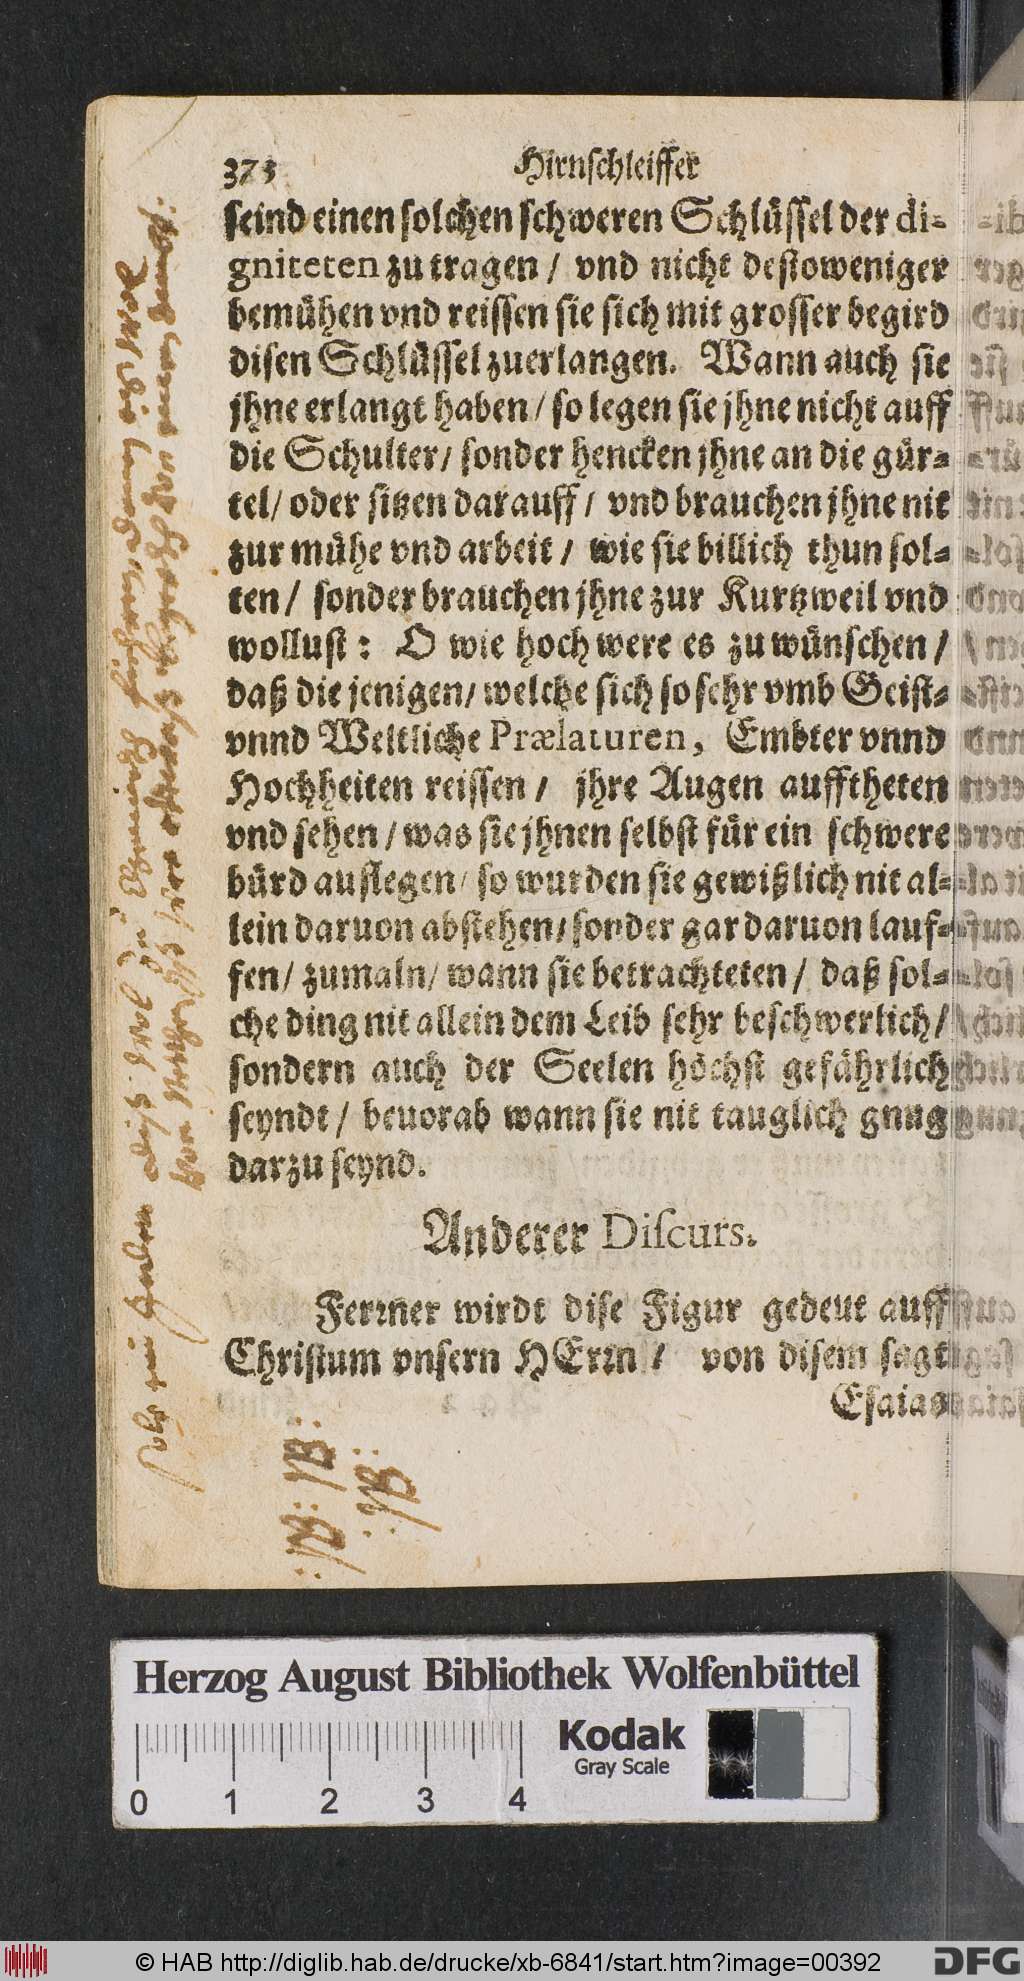 373
Hirnschleiffer
seind einen solchen schweren Schlüssel der di-
gniteten zu tragen / vnd nicht destoweniger
bemühen vnd reissen sie sich mit grosser begird
disen Schlüssel zuerlangen. Wann auch sie
jhne erlangt haben / so legen sie jhne nicht auff
die Schulter / sonder hencken jhne an die gür-
tel / oder sitzen darauff / vnd brauchen jhne nit
zur mühe vnd arbeit / wie sie billich thun sol-
ten / sonder brauchen jhne zur Kurtzweil vnd
wollust: O wie hoch were es zu wünschen /
daß die jenigen / welche sich so sehr vmb Geist-
vnnd Weltliche Prælaturen, Embter vnnd
Hochheiten reissen / jhre Augen aufftheten
vnd sehen / was sie jhnen selbst für ein schwere
bürd auflegen / so wurden sie gewißlich nit al-
lein daruon abstehen / sonder gar daruon lauf-
fen / zumaln / wann sie betrachteten / daß sol-
che ding nit allein dem Leib sehr beschwerlich /
sondern auch der Seelen höchst gefährlich
seyndt / beuorab wann sie nit tauglich gnug
darzu seynd.
Anderer Discurs.
Ferrner wirdt dise Figur gedeut auff
Christum vnsern HErrn / von disem sagt
Esaias
:NB: NB:
:NB:
Herzog August Bibliothek Wolfenbüttel
Kodak
Gray Scale
0 1 2 3 4
© HAB http://diglib.hab.de/drucke/xb-6841/start.htm?image=00392
DFG